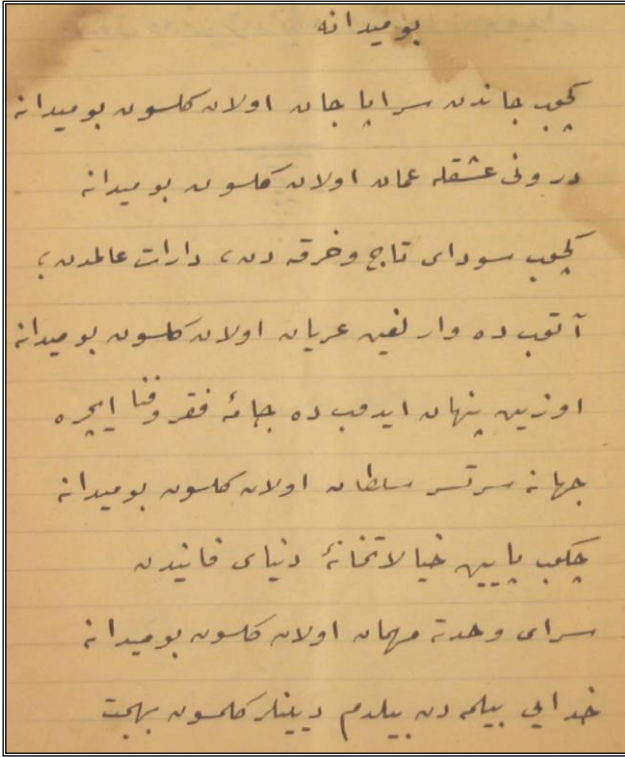 بو میدانه
كچوب جاندن سراپا جان اولان كلسون بو میدانه
درونی عشقله عمان اولان كلسون بو میدانه
كچوب سودای تاج وخرقه دن، دارات عالمدن،
آتوب ده وارلغین عریان اولان كلسون بو میدانه
اوزین پنهان ایدوب ده جامهٔ فقر وفنا ایچره
جهانه سرتسر سلطان اولان كلسون بو میدانه
چكوب پایین خیالاتخانهٔ دنیای فانیدن
سرای وحدته مهمان اولان كلسون بو میدانه
خدایی بیلمه دن بیلدم دیینلر كلمسون بهجت